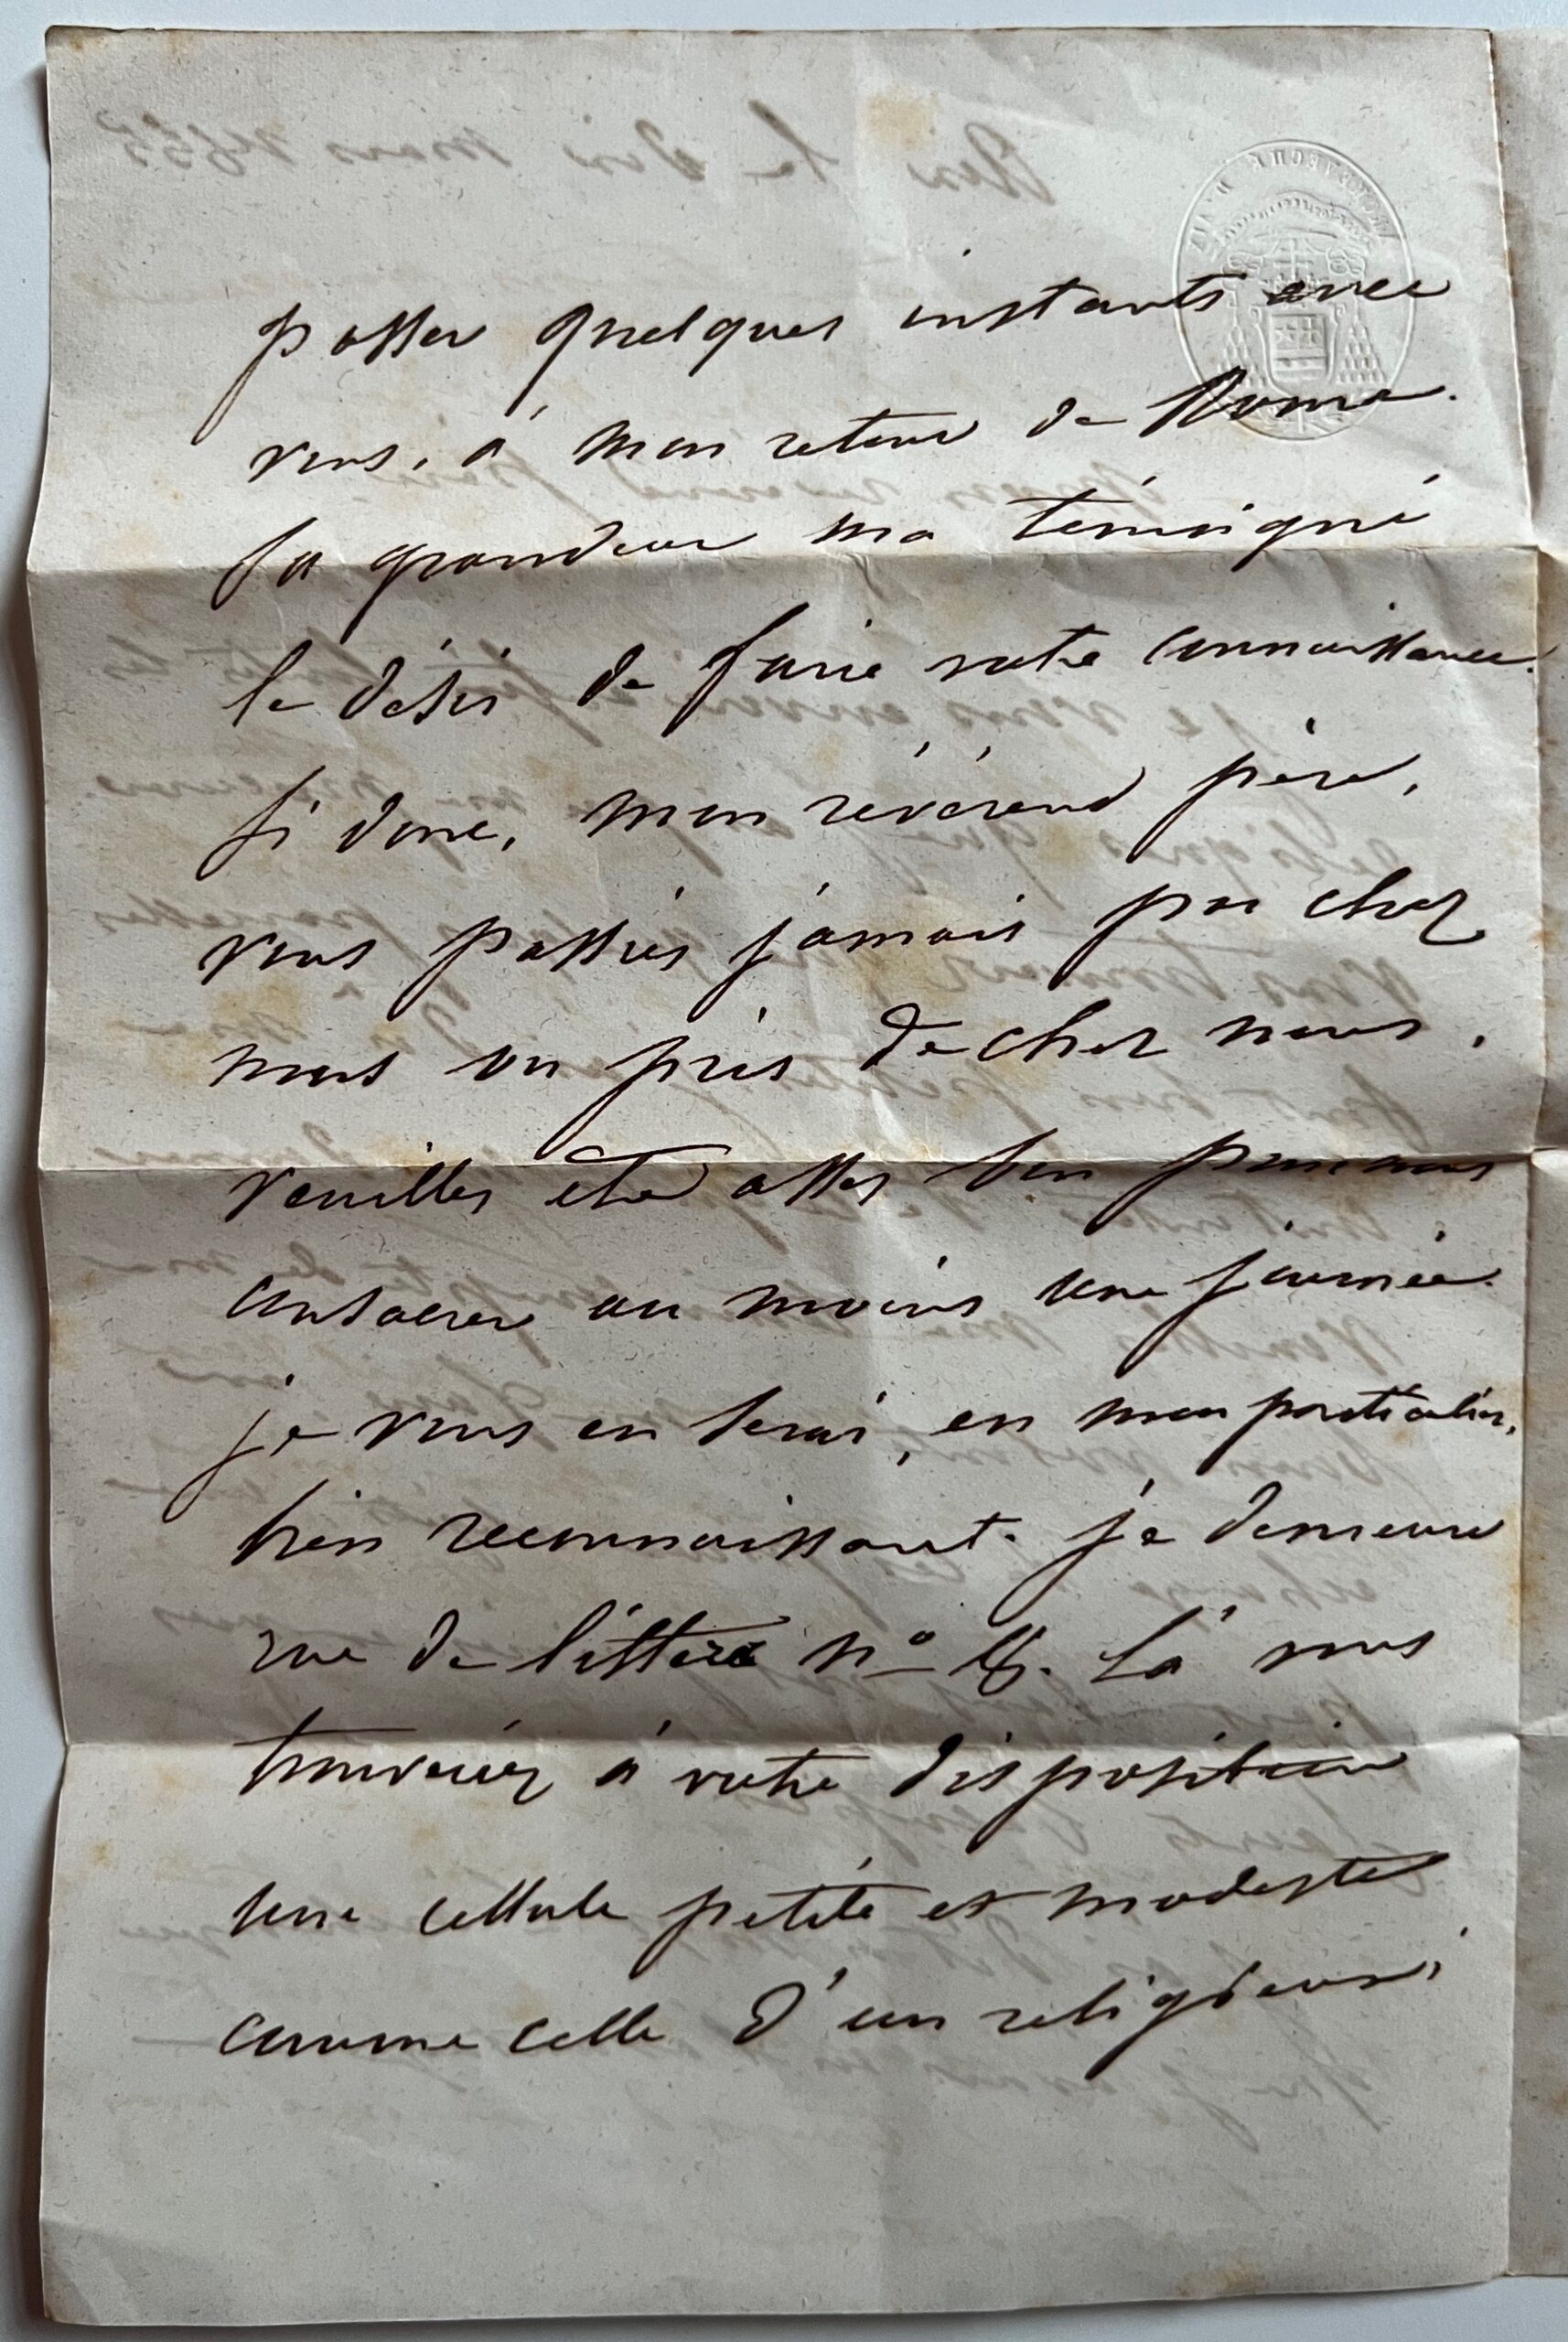 passer quelques instants avec
vous, à mon retour de Rome.
Sa grandeur m'a témoigné
le désir de faire votre connaissance.
Si donc, mon révérend père,
vous passiés jamais par chez
nous ou près de chez nous,
veuilles etre asses bon pour nous
consacrer au moins une journée.
je vous en serai, en mon particulier,
bien reconnaissant. je demeure
rue de n° 8. Là vous
trouveriez à votre disposition
une cellule petite et modeste
comme celle d'un religieux,